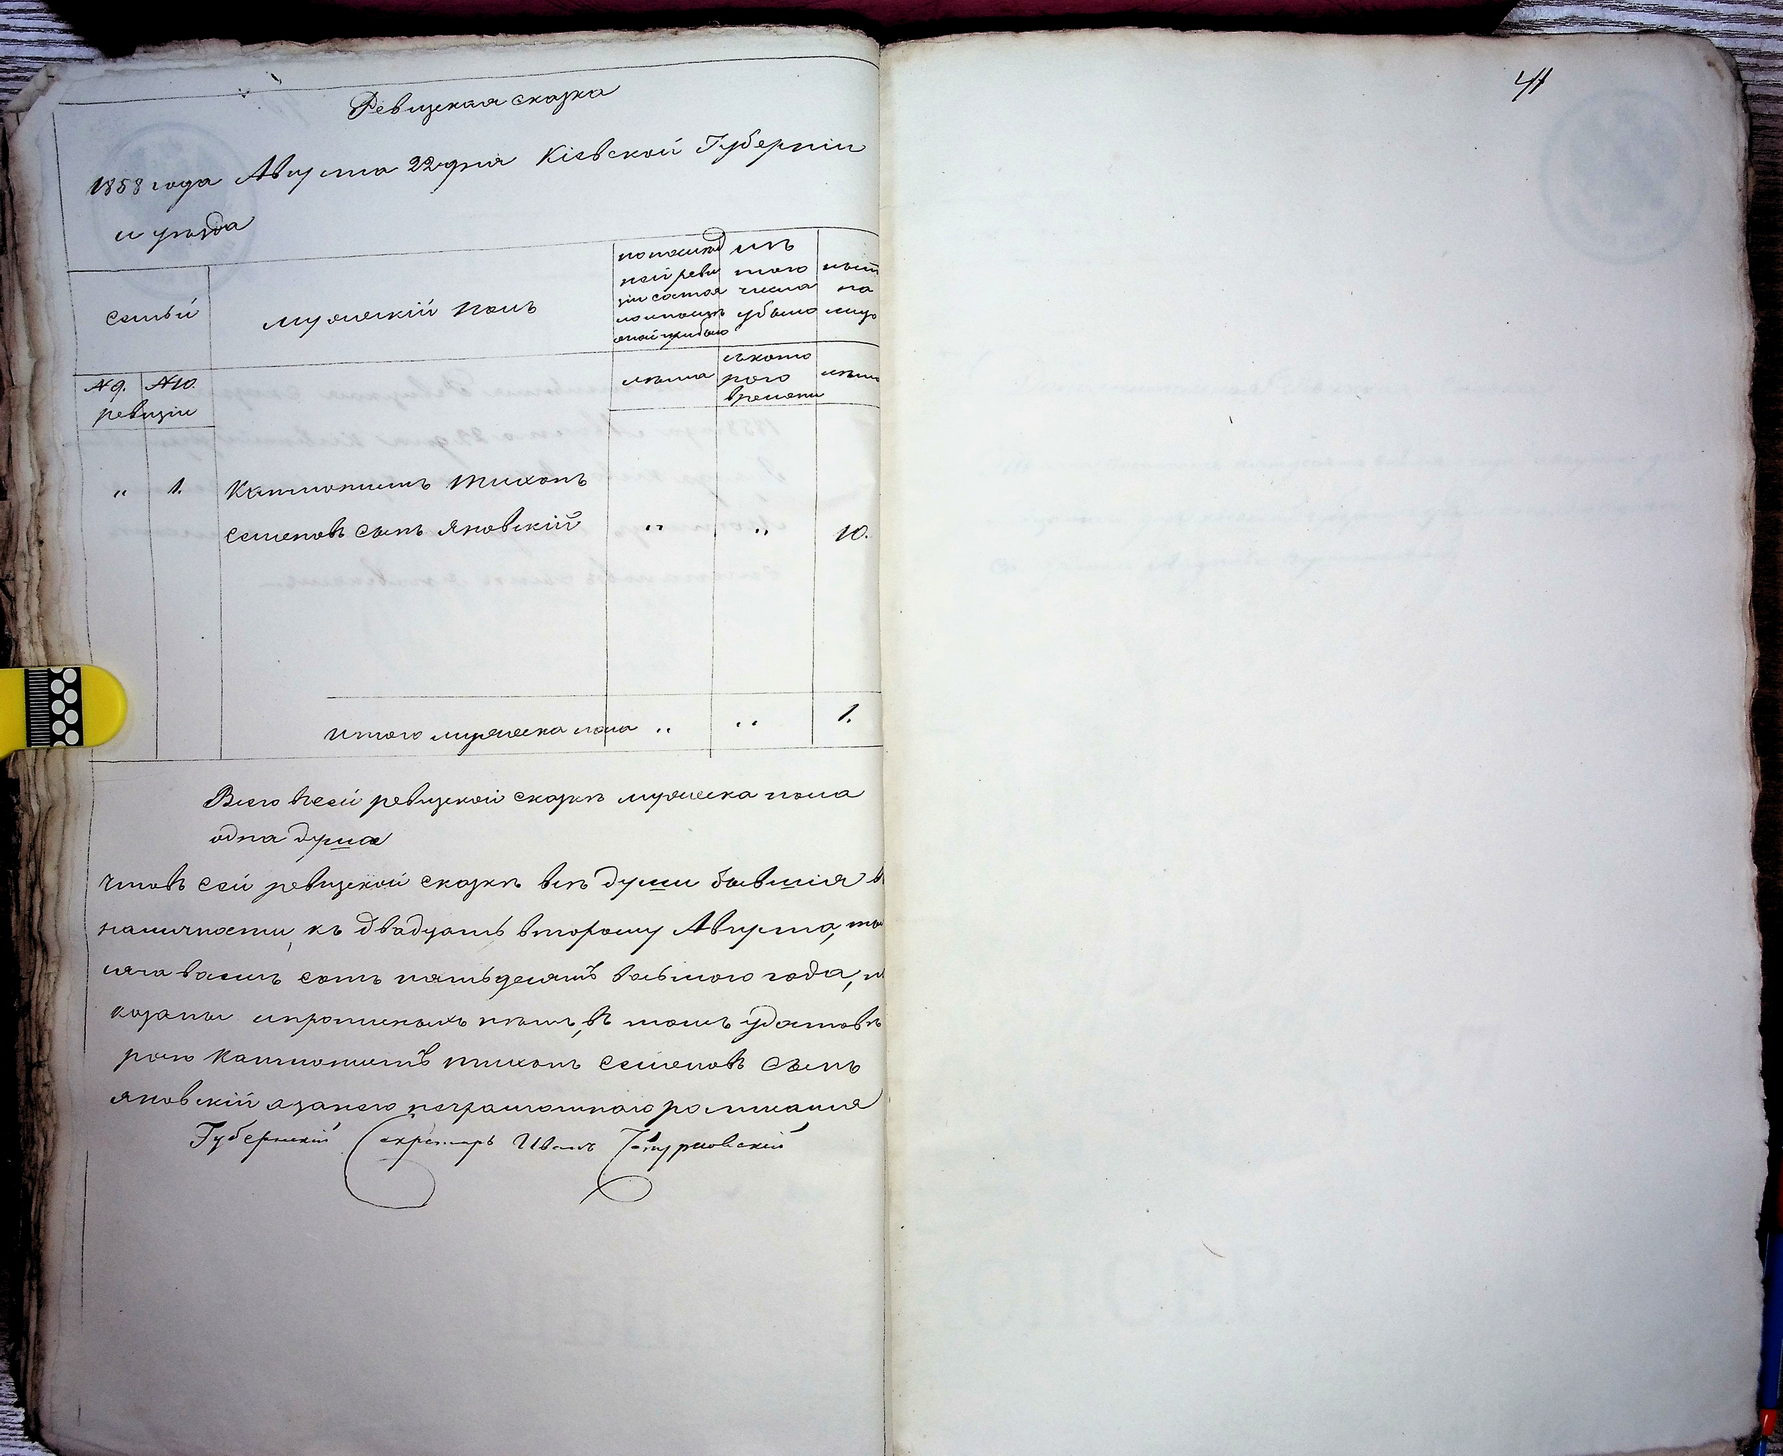 41
Ревизская сказка
1858 года Августа 22 дня Кіевской Губерніи
и уезда
семьи
мужескій полъ
изъ
того
числа
убыло
на
лицо
№ 9. № 10.
ревизіи
лета
съ кото
рого
времени
лета
„ 1. Кантонистъ Тихонъ
Семеновъ сынъ Яновскій „ „ 10.
Итого мужеска пола „ „ 1.
Всего в сей ревизской сказкѣ мужеска пола
одна душа
Что въ сей ревизской сказкѣ всѣ души бывшія в
наличности, къ двадцать второму Августа, ты
сяча восемъ сотъ пятьдесятъ восьмого года, по
казаны и прописныхъ нѣтъ, въ томъ удостовѣ
ряю Кантонистъ Тихонъ Семеновъ сынъ
Яновскій а за него неграмотнаго росписался
Губернскій Секретарь Иванъ